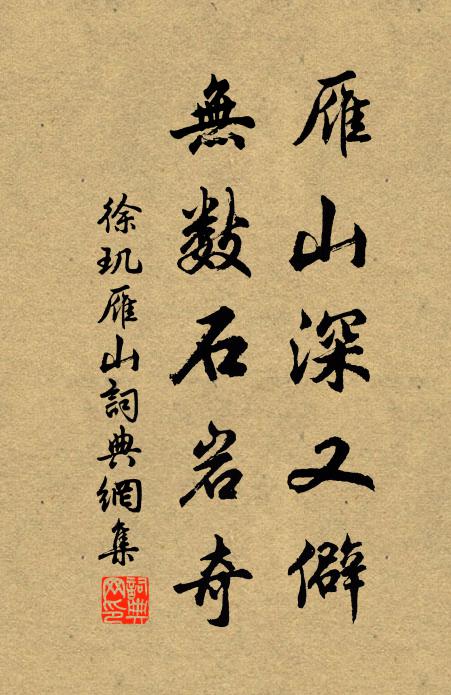 雁山深又僻
無数石岩奇
徐玑雁山詞典網集
詞典网印